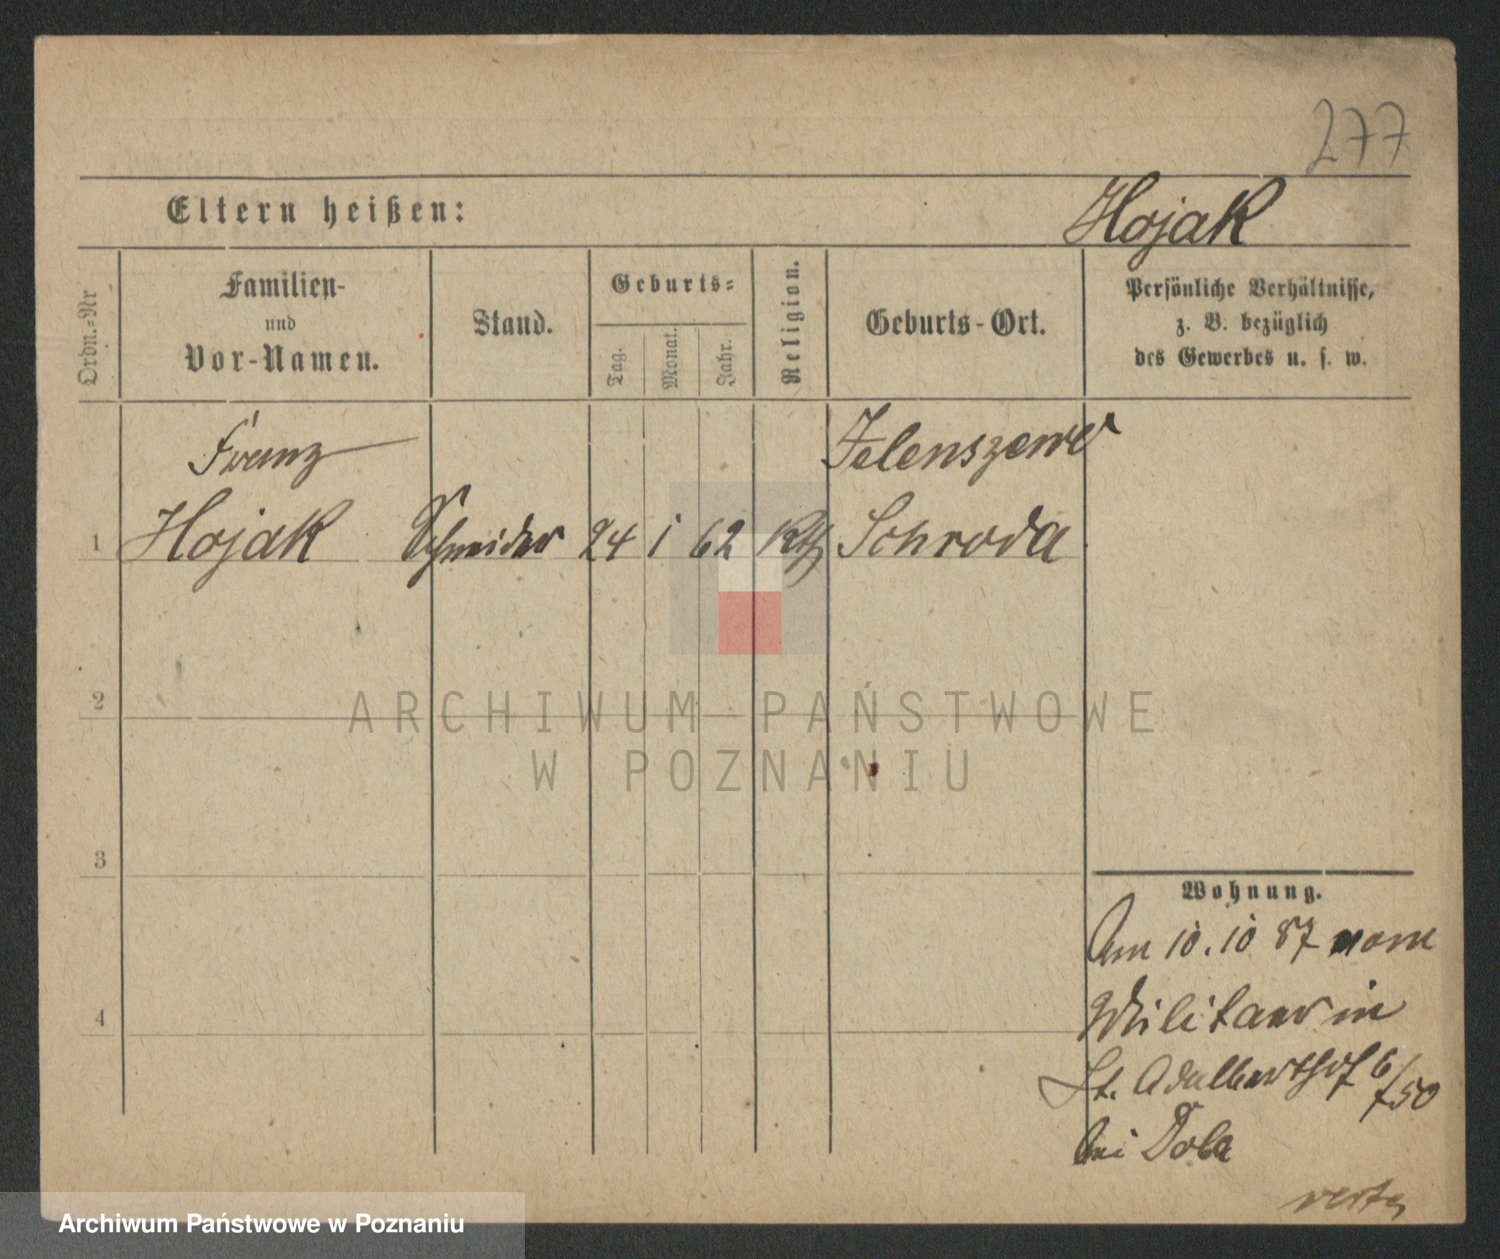 277
Eltern heißen:
Hojak
Ordn.=Nr
Familien-
und
Vor-Namen.
Stand.
Geburts=
Tag.
Monat.
Jahr.
Religion.
Geburts-Ort.
Persönliche Verhältnisse,
z. B. bezüglich
des Gewerbes u. s. w.
Franz
1 Hojak Schneider 24 1 62 Kth Schroda
2
3
4
Wohnung.
Am 10.10 87 vom
Militaer in
St. Adalberthof 6/
bei
ARCHIWUM PAŃSTWOWE
W POZNANIU
Archiwum Państwowe w Poznaniu